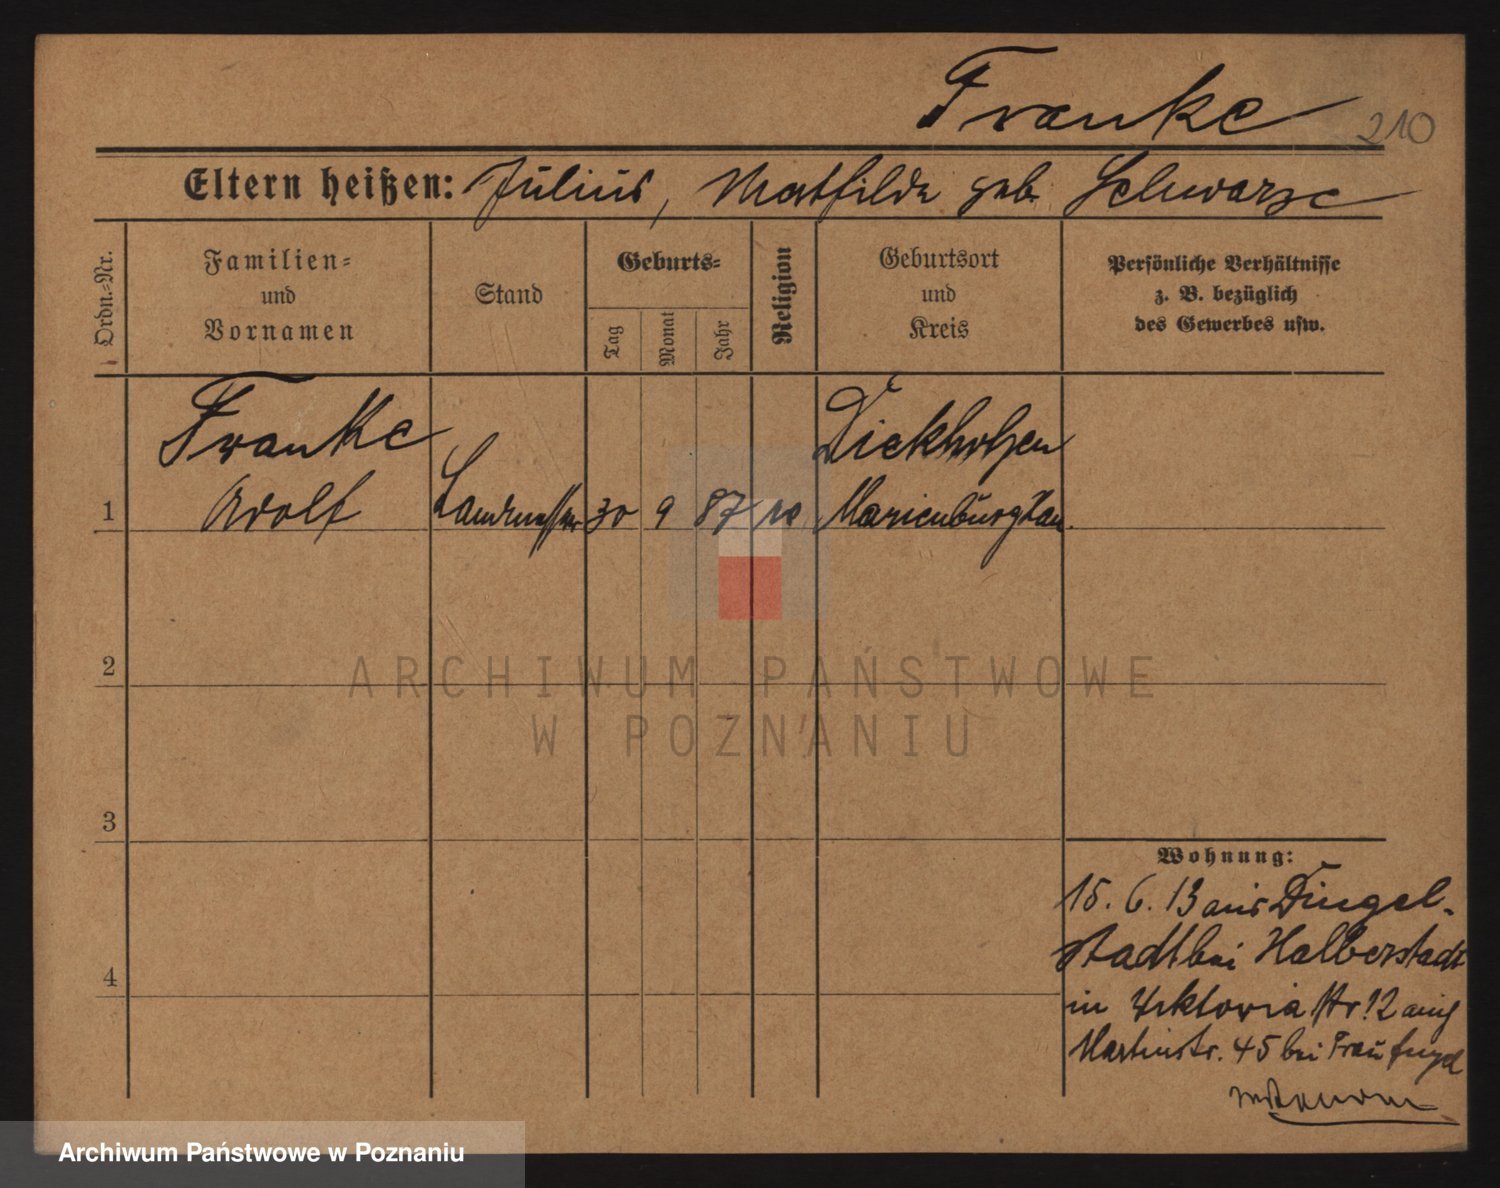 Franke 210
Eltern heißen: Julius, Mathilde geb. Schwarze
Ordn.-Nr.
Familien-
und
Vornamen
Stand
Geburts-
Tag
Monat
Jahr
Religion
Geburtsort
und
Kreis
Persönliche Verhältnisse
z. B. bezüglich
des Gewerbes usw.
Franke Dickholzen
1 Adolf Landmesser 30 9 87 Marienburg Han.
2
3
4
Wohnung:
15. 6. 13 aus Dingel-
stadt bei Halberstadt
in Viktoria str. 12 auf
Martinstr. 45 bei Frau Engel
ARCHIWUM PAŃSTWOWE
W POZNANIU
Archiwum Państwowe w Poznaniu